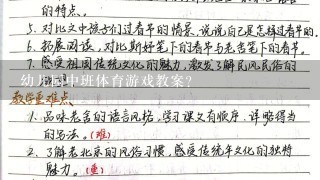 的特点。
5. 对比文中孩子们过春节的情景,说说自己是怎样过春节的。
6. 拓展阅读,对比斯好笔下的春节与老舍笔下的春节。
7. 感受祖国传统文化的魅力,激发了解民风民俗的
幼儿园中班体育游戏教案?
教学重难点
1. 品味老舍的语言风格,学习课文有顺序、详略得当
的写法。(难)
2. 了解老北京的风俗习惯,感受传统年文化的独特
魅力。(重)